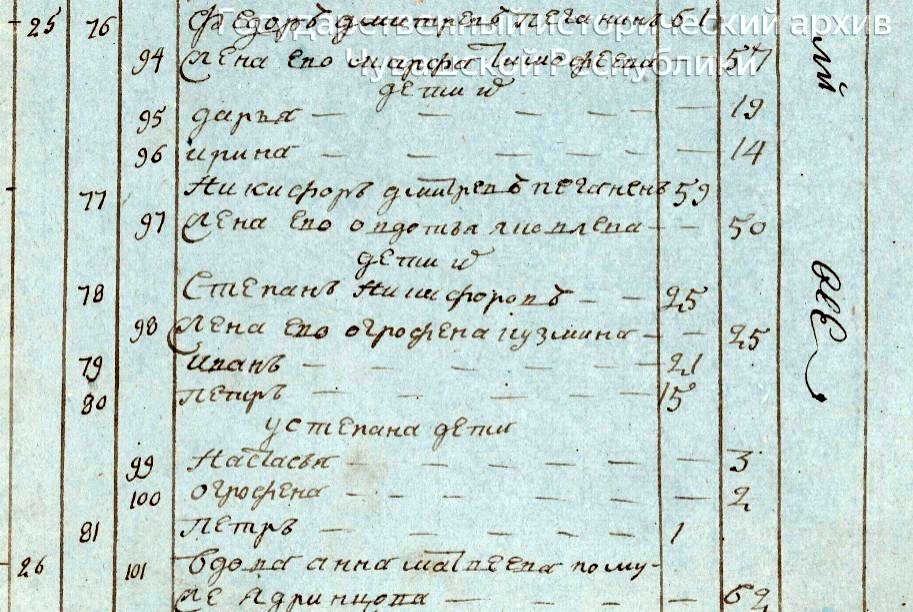 Государственный исторический архив
Чувашской Республики
25 76 Федоръ дмитревъ пеганинъ 61
94 жена ево марфа тимофеева — 57
дети и[х]
95 дарья — — — — — 19
96 ирина — — — — — — 14
77 Никифоръ дмитревъ пеганенъ 59
97 жена ево овдотья яковлева — — 50
дети и[х]
78 Степанъ Никифоровъ — — 25
98 жена ево огрофена кузмина — — 25
79 иванъ — — — — — — 21
80 петръ — — — — — — 15
у степана дети
99 Настасья — — — — — — 3
100 огрофена — — — — — — 2
81 Петръ — — — — — 1
26 101 вдова анна матвеева по му-
же Ядринцова — — — — 62